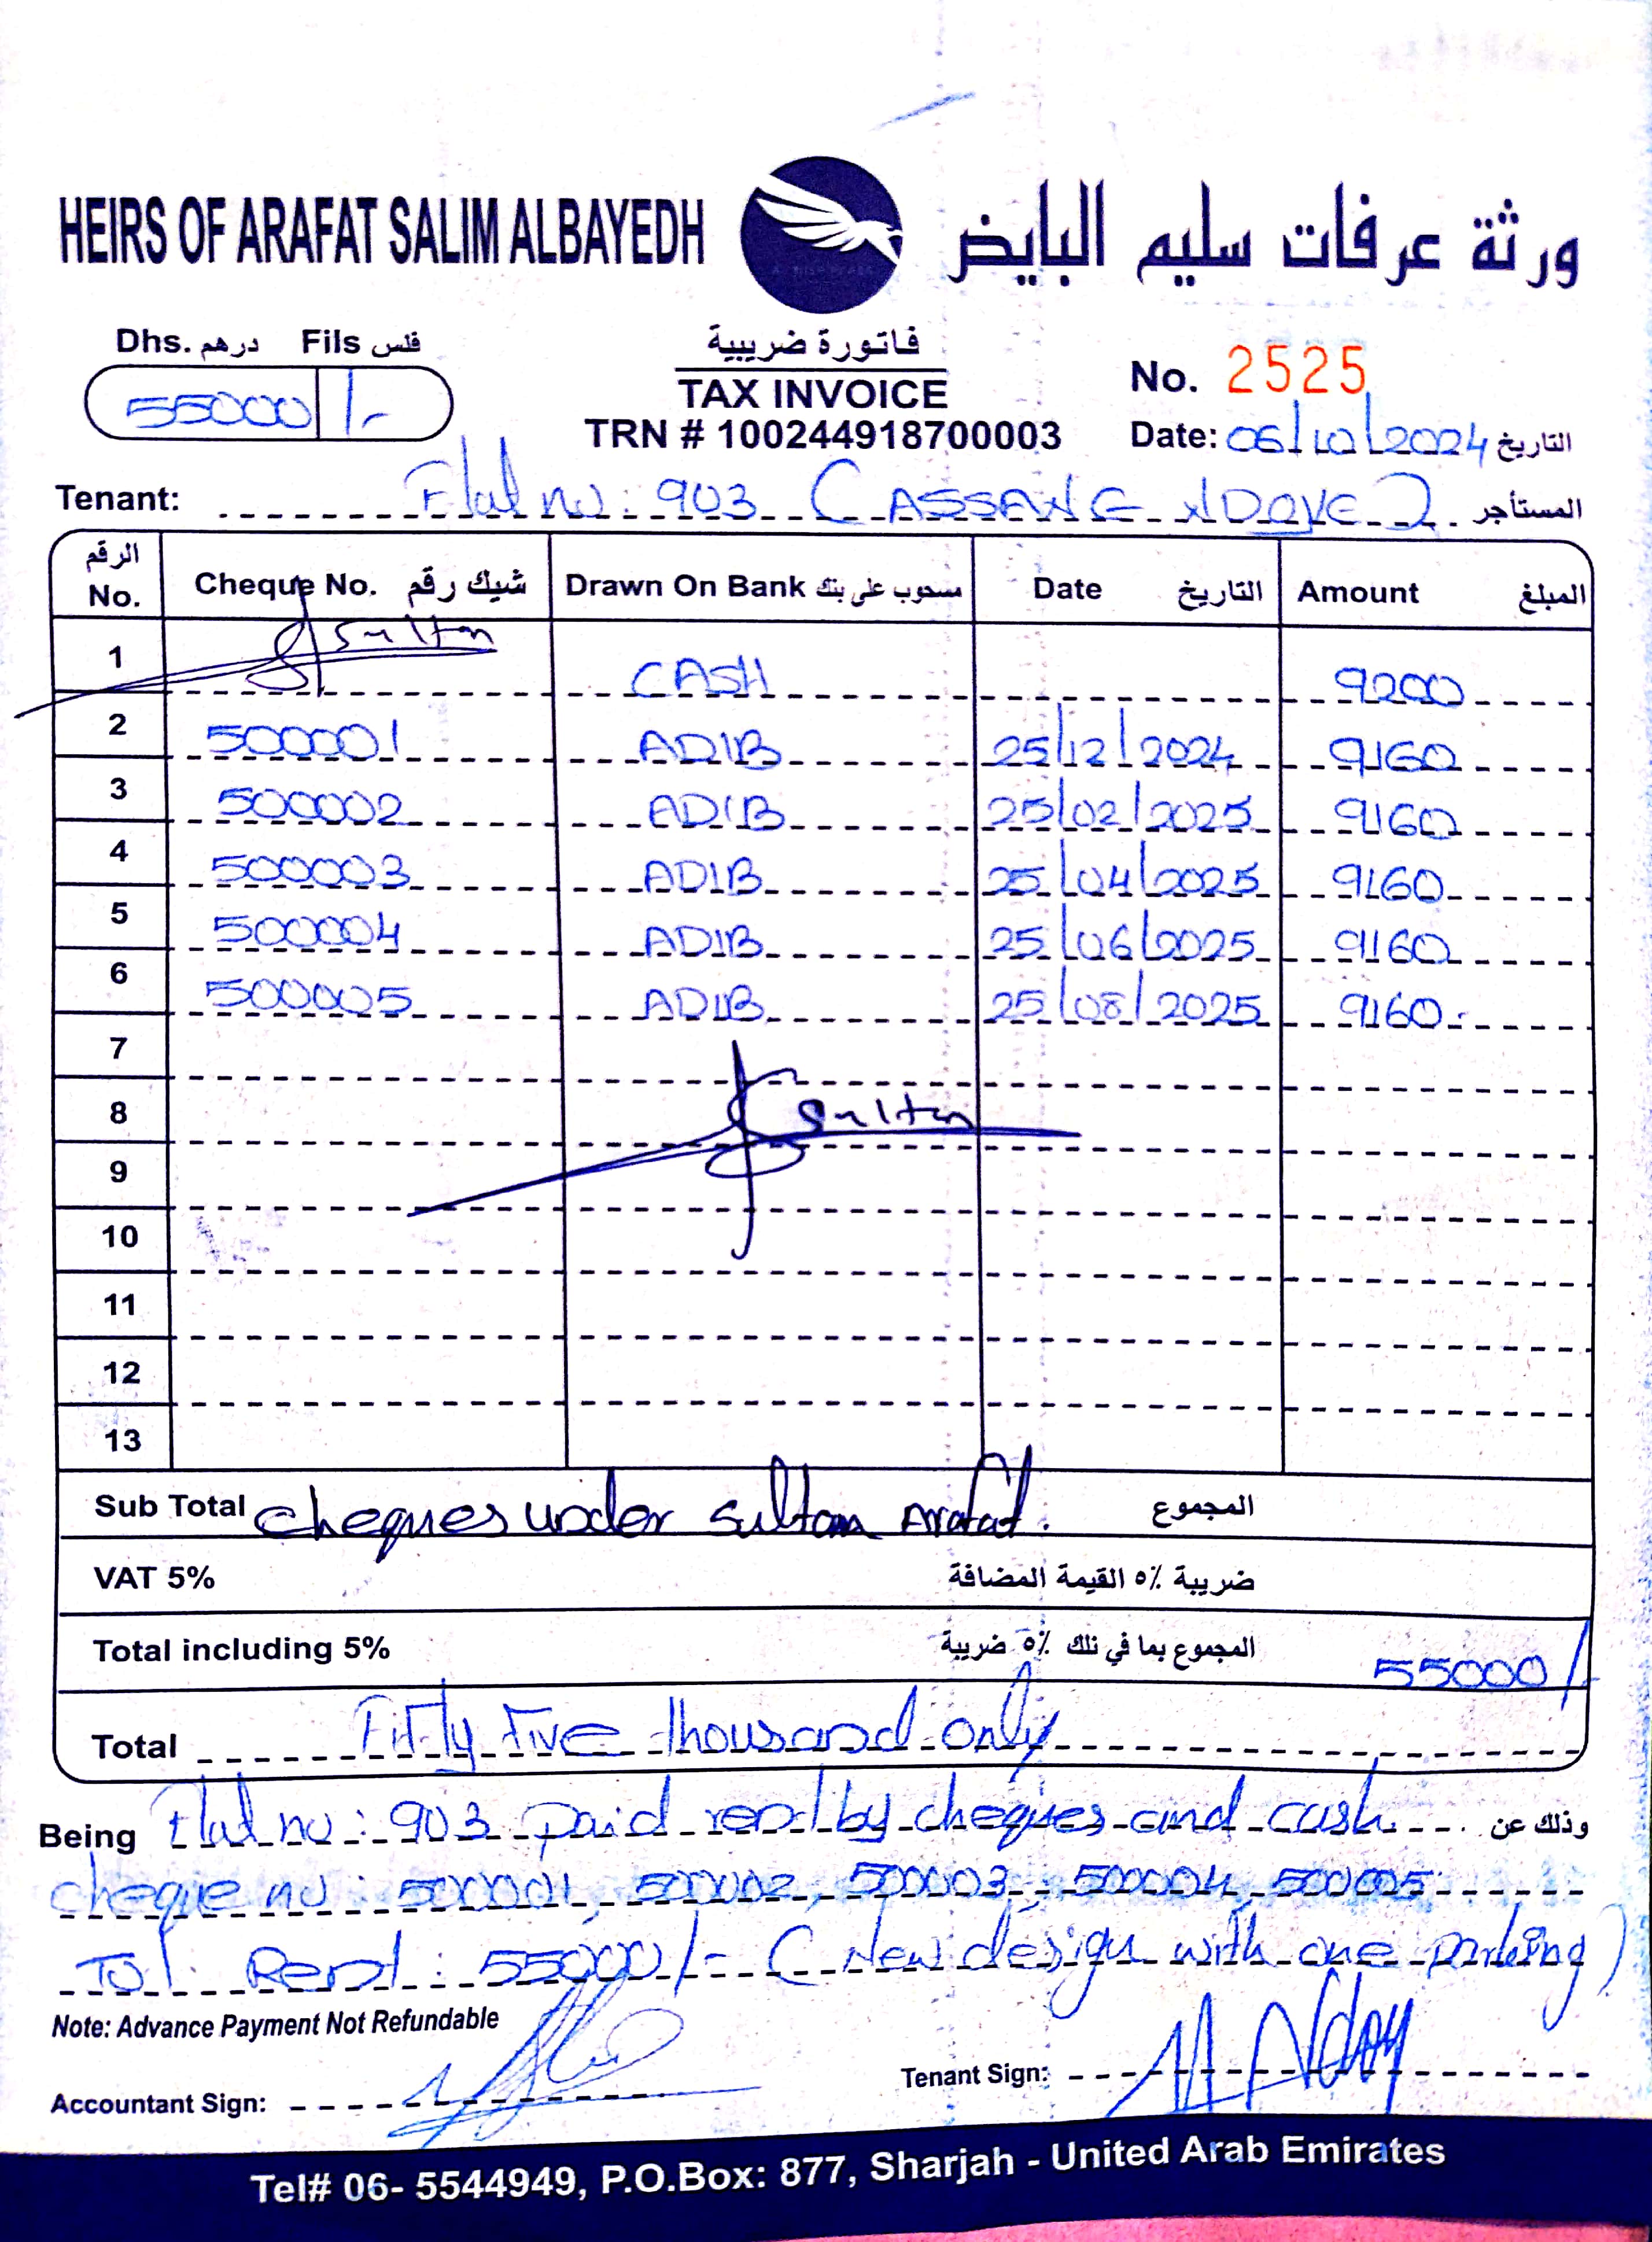 HEIRS OF ARAFAT SALIM ALBAYEDH ورثة عرفات سليم البايض
Dhs. درهم Fils فلس
55000 /-
فاتورة ضريبية
TAX INVOICE
TRN # 100244918700003
No. 2525
Date: 06/10/2024 التاريخ
Tenant: Flat no: 903 (ASSANE NDOYE) المستأجر
الرقم No. Cheque No. شيك رقم Drawn On Bank مسحوب على بنك Date التاريخ Amount المبلغ
1 Sultan CASH 9200
2 500001 ADIB 25/12/2024 9160
3 500002 ADIB 25/02/2025 9160
4 500003 ADIB 25/04/2025 9160
5 500004 ADIB 25/06/2025 9160
6 500005 ADIB 25/08/2025 9160
7
8 Sultan
9
10
11
12
13
Sub Total cheques under Sultan Arafat. المجموع
VAT 5% ضريبة ٥٪ القيمة المضافة
Total including 5% المجموع بما في ذلك ٥٪ ضريبة 55000/-
Total Fifty Five thousand only
Being Flat no: 903 paid rent by cheques and cash وذلك عن
cheque no: 500001, 500002, 500003, 500004, 500005
Tot. Rent: 55000/- (New design with one parking)
Note: Advance Payment Not Refundable
Accountant Sign:
Tenant Sign: Ndoy
Tel# 06- 5544949, P.O.Box: 877, Sharjah - United Arab Emirates